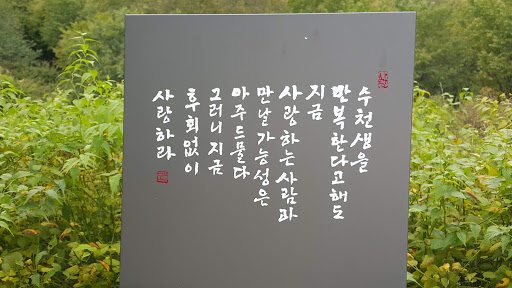 수천생을
반복한다고해도
지금
사랑하는사람과
만날가능성은
아주드물다
그러니지금
후회없이
사랑하라